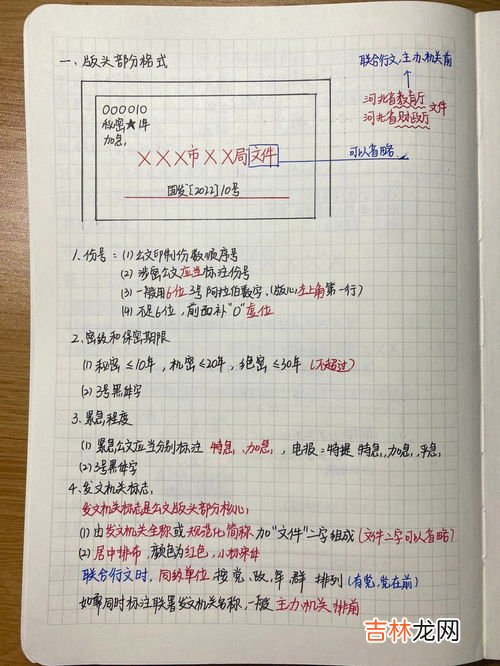 一、版头部分格式
联合行文,主办机关前
河北省教育厅
河北省财政厅
文件
000010
秘密★1年
加急
×××市××局文件
可以省略
国发[2022]10号
1.份号:(1)公文印制份数顺序号
(2)涉密公文应当标注份号
(3)一般用6位3号阿拉伯数字,(版心左上角第一行)
(4)不足6位,前面补"0"虚位
2.密级和保密期限
(1)秘密≤10年,机密≤20年,绝密≤30年(不超过)
(2)3号黑体字
3.紧急程度
(1)紧急公文应当分别标注 特急、加急,电报:特提 特急,加急,平急
(2)3号黑体字
4.发文机关标志
发文机关标志是公文版头部分核心
(1)由发文机关全称或规范化简称加"文件"二字组成(文件二字可以省略)
(2)居中排布,颜色为红色,小标宋体
联合行文时,同级单位按党、政、军、群排列(有党,党在前)
如需同时标注联署发文机关名称,一般主办机关排前
吉林龙网